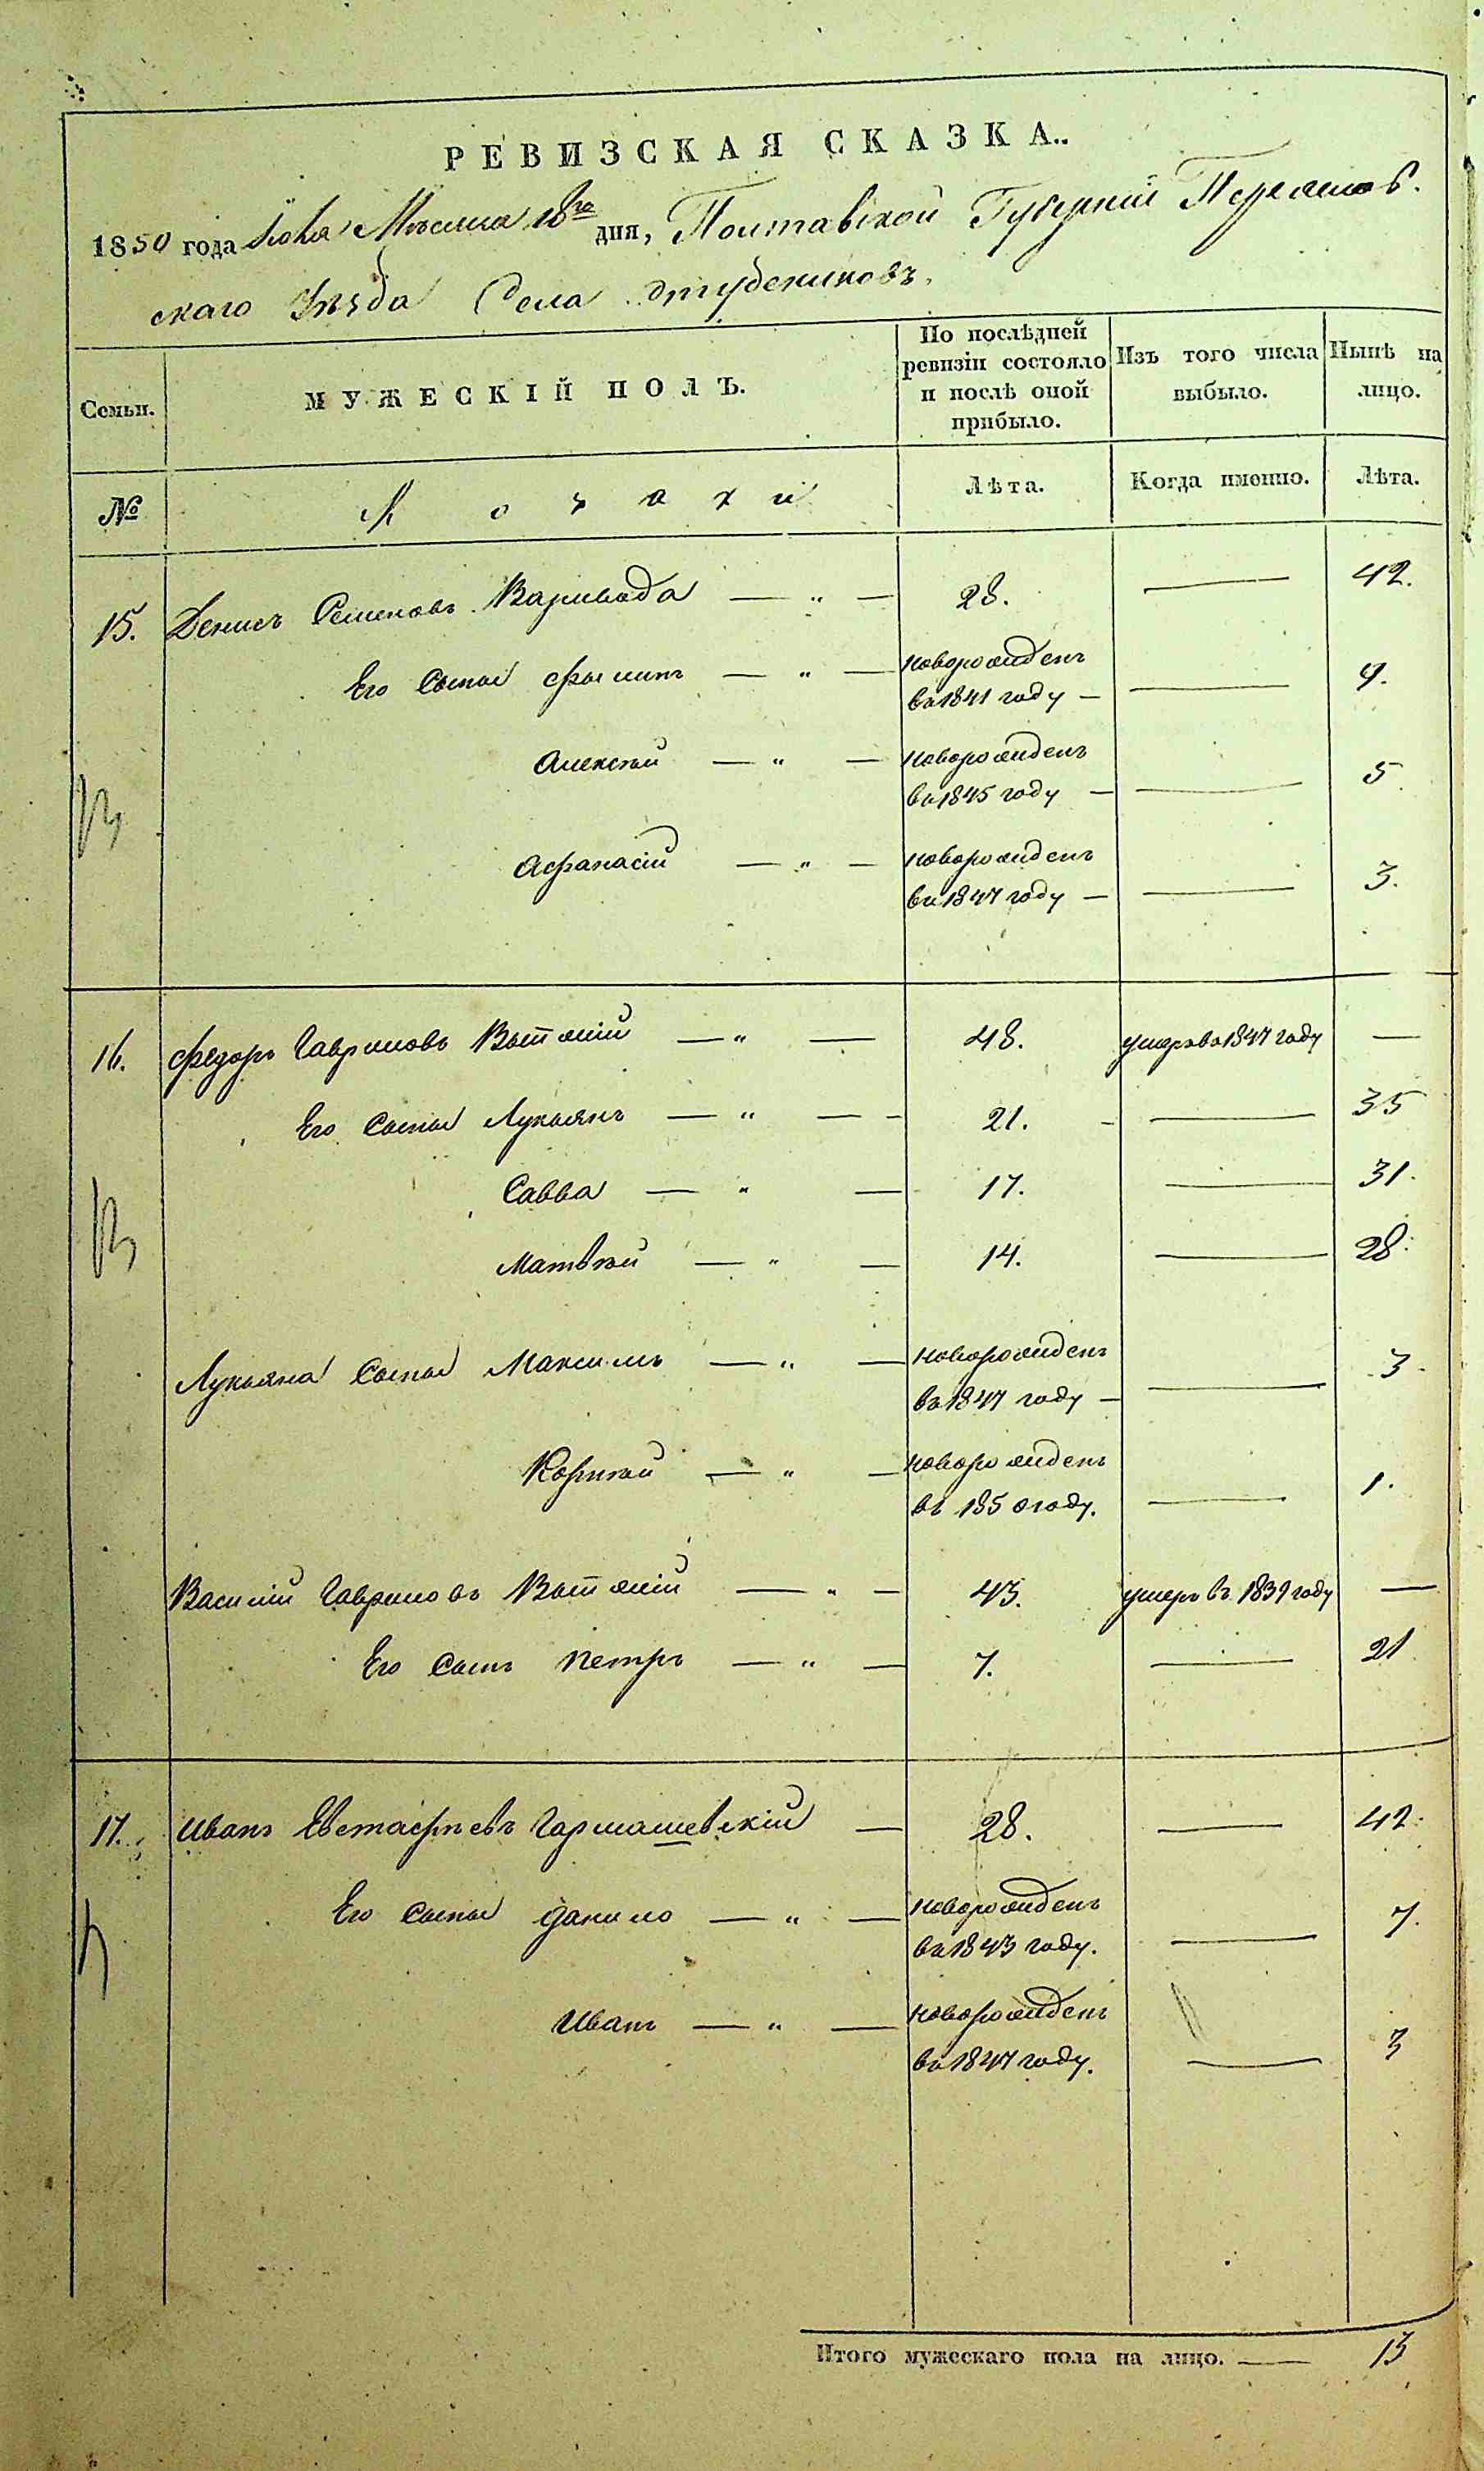 РЕВИЗСКАЯ СКАЗКА.
1850 года Мѣсяца 18го дня, Полтавской Губерніи Переяслов-
скаго Уѣзда Села Студениковъ.
Семьи.
МУЖЕСКІЙ ПОЛЪ.
По послѣдней ревизіи состояло и послѣ оной прибыло.
Изъ того числа выбыло.
Нынѣ на лицо.
№
Козаки
Лѣта.
Когда именно.
Лѣта.
15. Денисъ Семеновъ Варивода — „ — 28. — 42.
Его Сынья Филипъ — „ — новорожденъ
въ 1841 году — — 9.
Алексѣй — „ — новорожденъ
въ 1845 году — — 5
Афанасій — „ — новорожденъ
въ 1847 году — — 3.
16. Федоръ Гавриловъ — „ — 48. умеръ въ 1847 году —
Его Сынья Лукьянъ — „ — 21. — 35
Савва — „ — 17. — 31.
Матвѣй — „ — 14. — 28.
Лукьяна Сынья Максимъ — „ — новорожденъ
въ 1847 году — — 3
Корнѣй — „ — новорожденъ
въ 1850 году. — 1.
Василій Гавриловъ — „ — 43. умеръ въ 1839 году —
Его Сынъ Петръ — „ — 7. — 21
17. Иванъ Евстафіевъ Гармашевскій — 28. — 42.
Его Сынья Данило — „ — новорожденъ
въ 1843 году. — 7.
Иванъ — „ — новорожденъ
въ 1847 году. — 3
Итого мужескаго пола на лицо. — 13